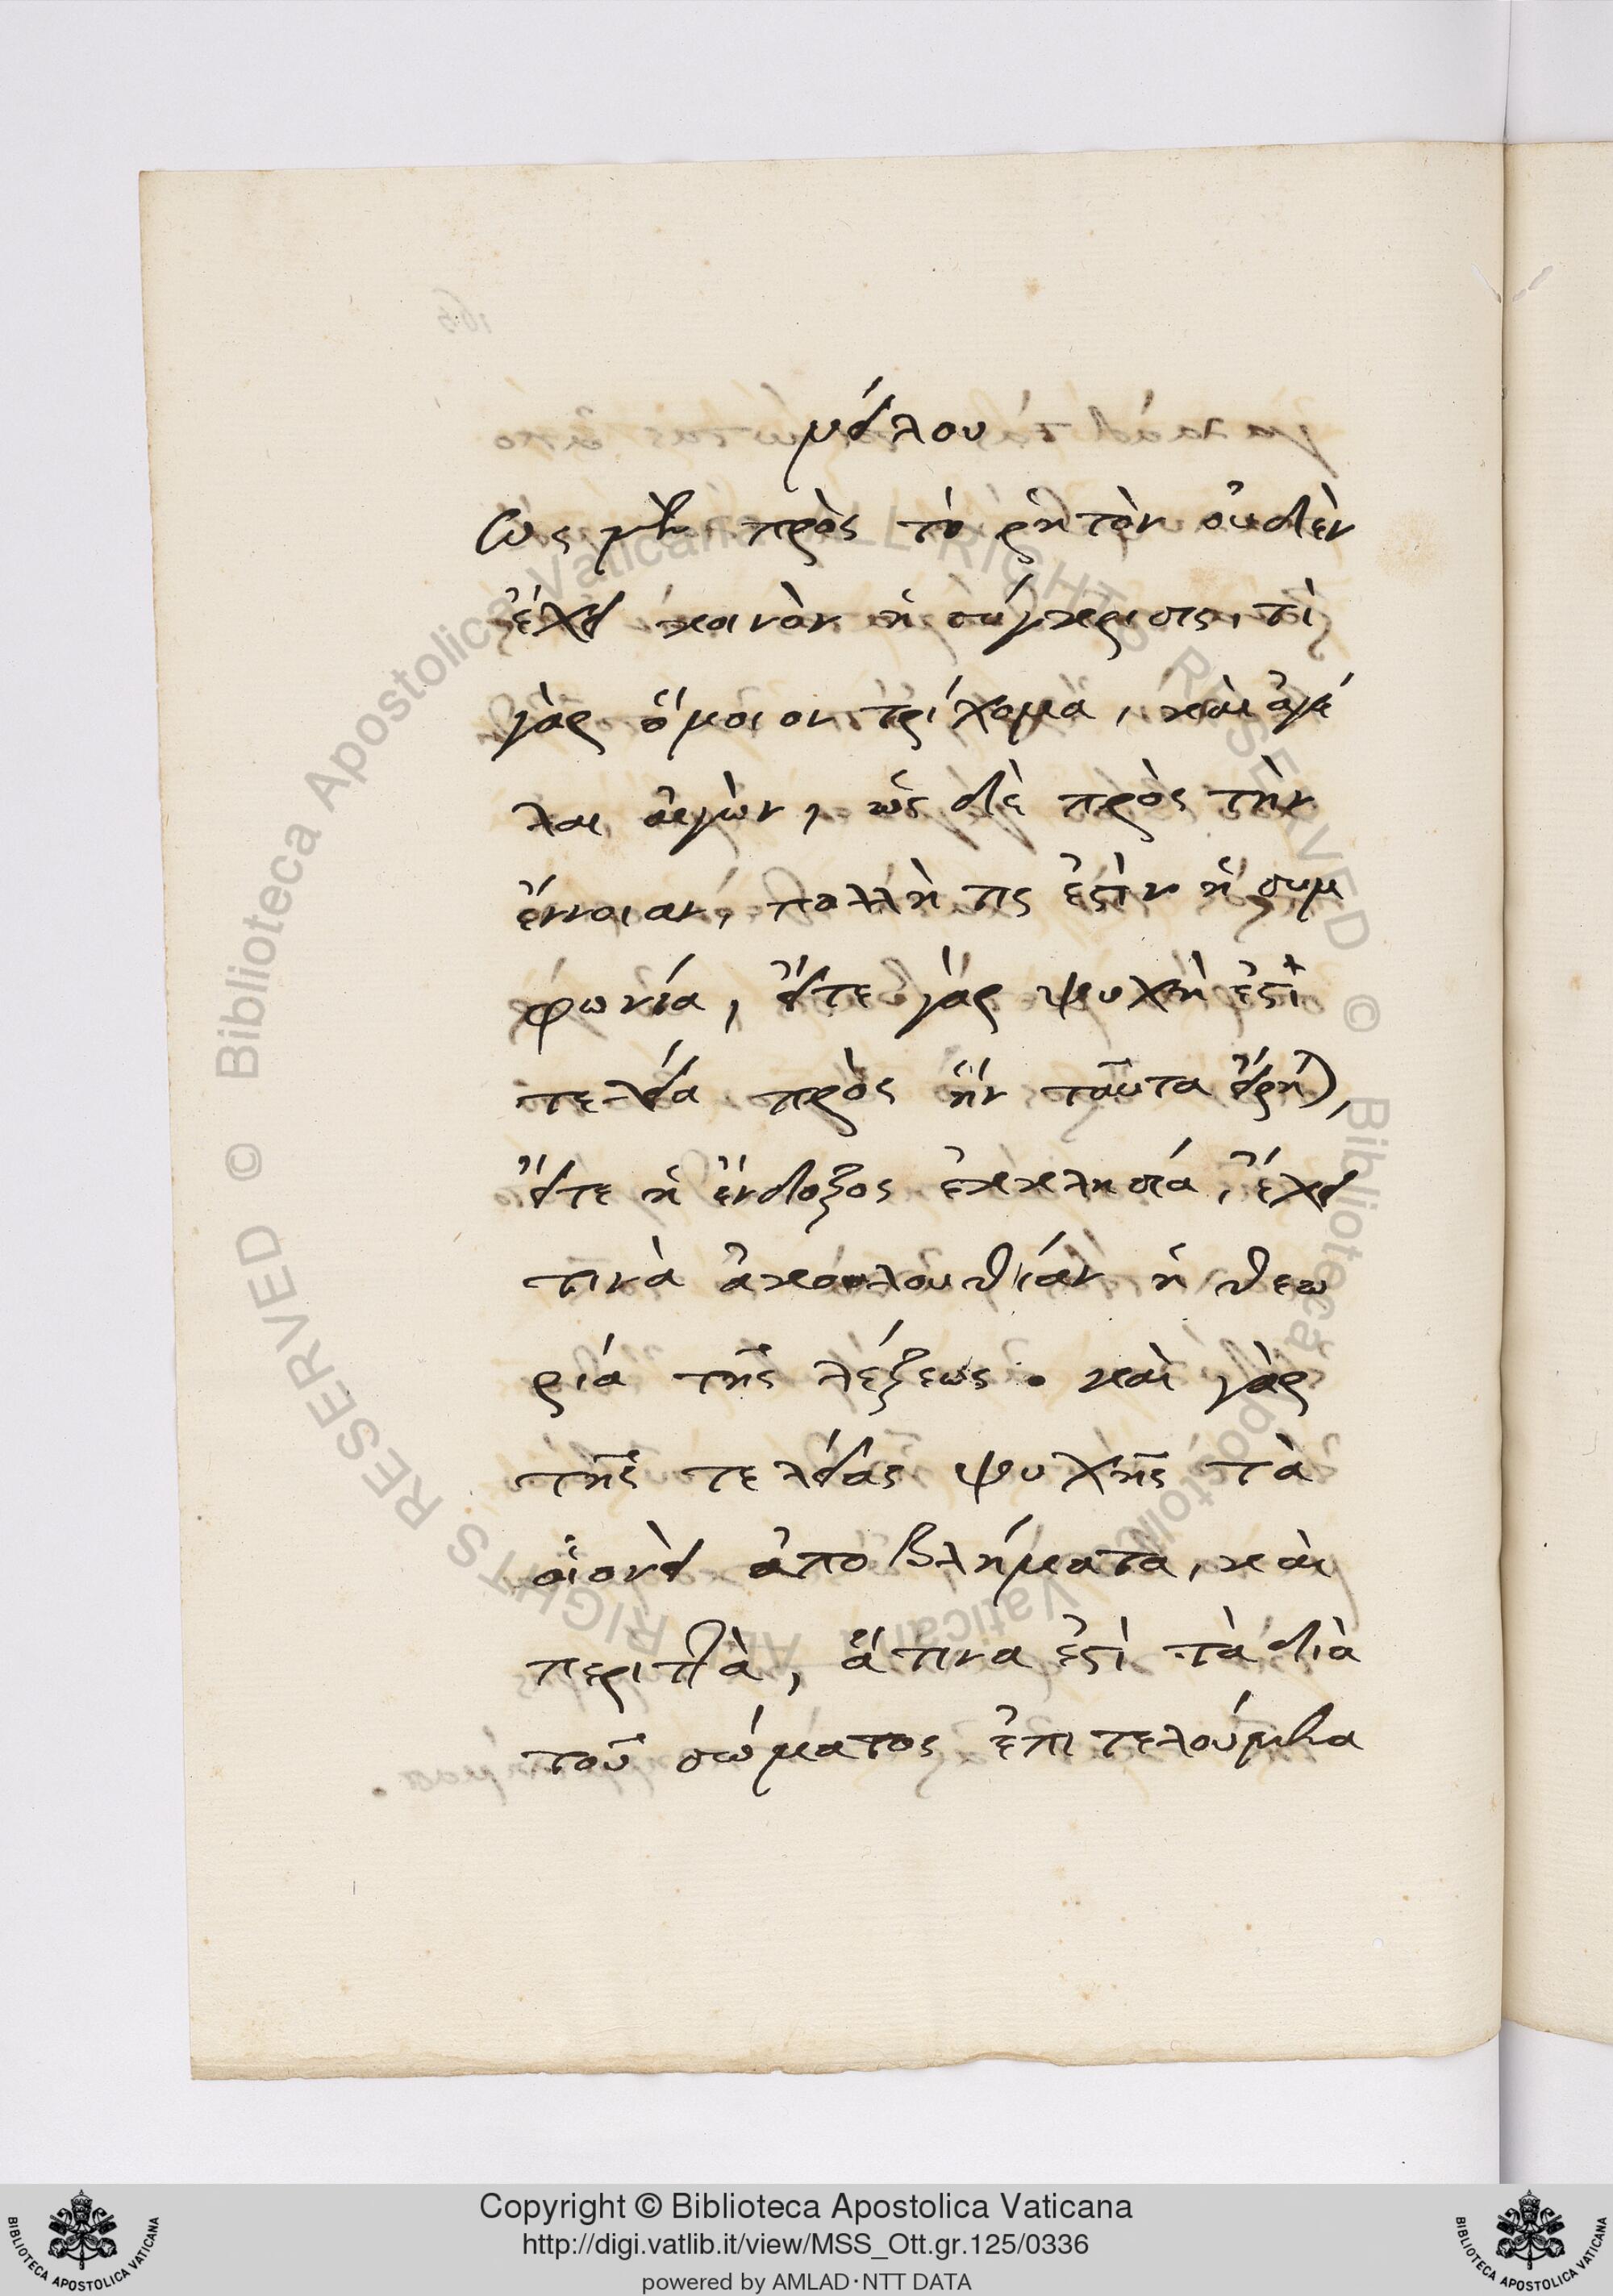 νείλου
Ὡς μὲν πρὸς τὸ ῥητὸν οὐδὲν
ἔχει κοινὸν ἡ σύγκρισις, τί
γὰρ ὅμοιον τρίχομα, καὶ ἀγέ
λαι αἰγῶν, ὡς δὲ πρὸς τὴν
ἔννοιαν, πολλή τις ἐστὶν ἡ συμ
φωνία, εἴτε γὰρ ψυχή ἐστι
τελεία πρὸς ἣν ταῦτα εἴρηται,
εἴτε ἡ ἔνδοξος ἐκκλησία, ἔχει
τινὰ ἀκολουθίαν ἡ θεω
ρία τῆς λέξεως. καὶ γὰρ
τῆς τελείας ψυχῆς τὰ
οἱονεὶ ἀποβλήματα, καὶ
περιττὰ, ἅτινα ἐστὶ τὰ διὰ
τοῦ σώματος ἐπιτελούμενα
© Biblioteca Apostolica Vaticana ALL RIGHTS RESERVED © Biblioteca Apostolica Vaticana ALL RIGHTS RESERVED
Copyright © Biblioteca Apostolica Vaticana
http://digi.vatlib.it/view/MSS_Ott.gr.125/0336
powered by AMLAD·NTT DATA
BIBLIOTECA APOSTOLICA VATICANA
BIBLIOTECA APOSTOLICA VATICANA